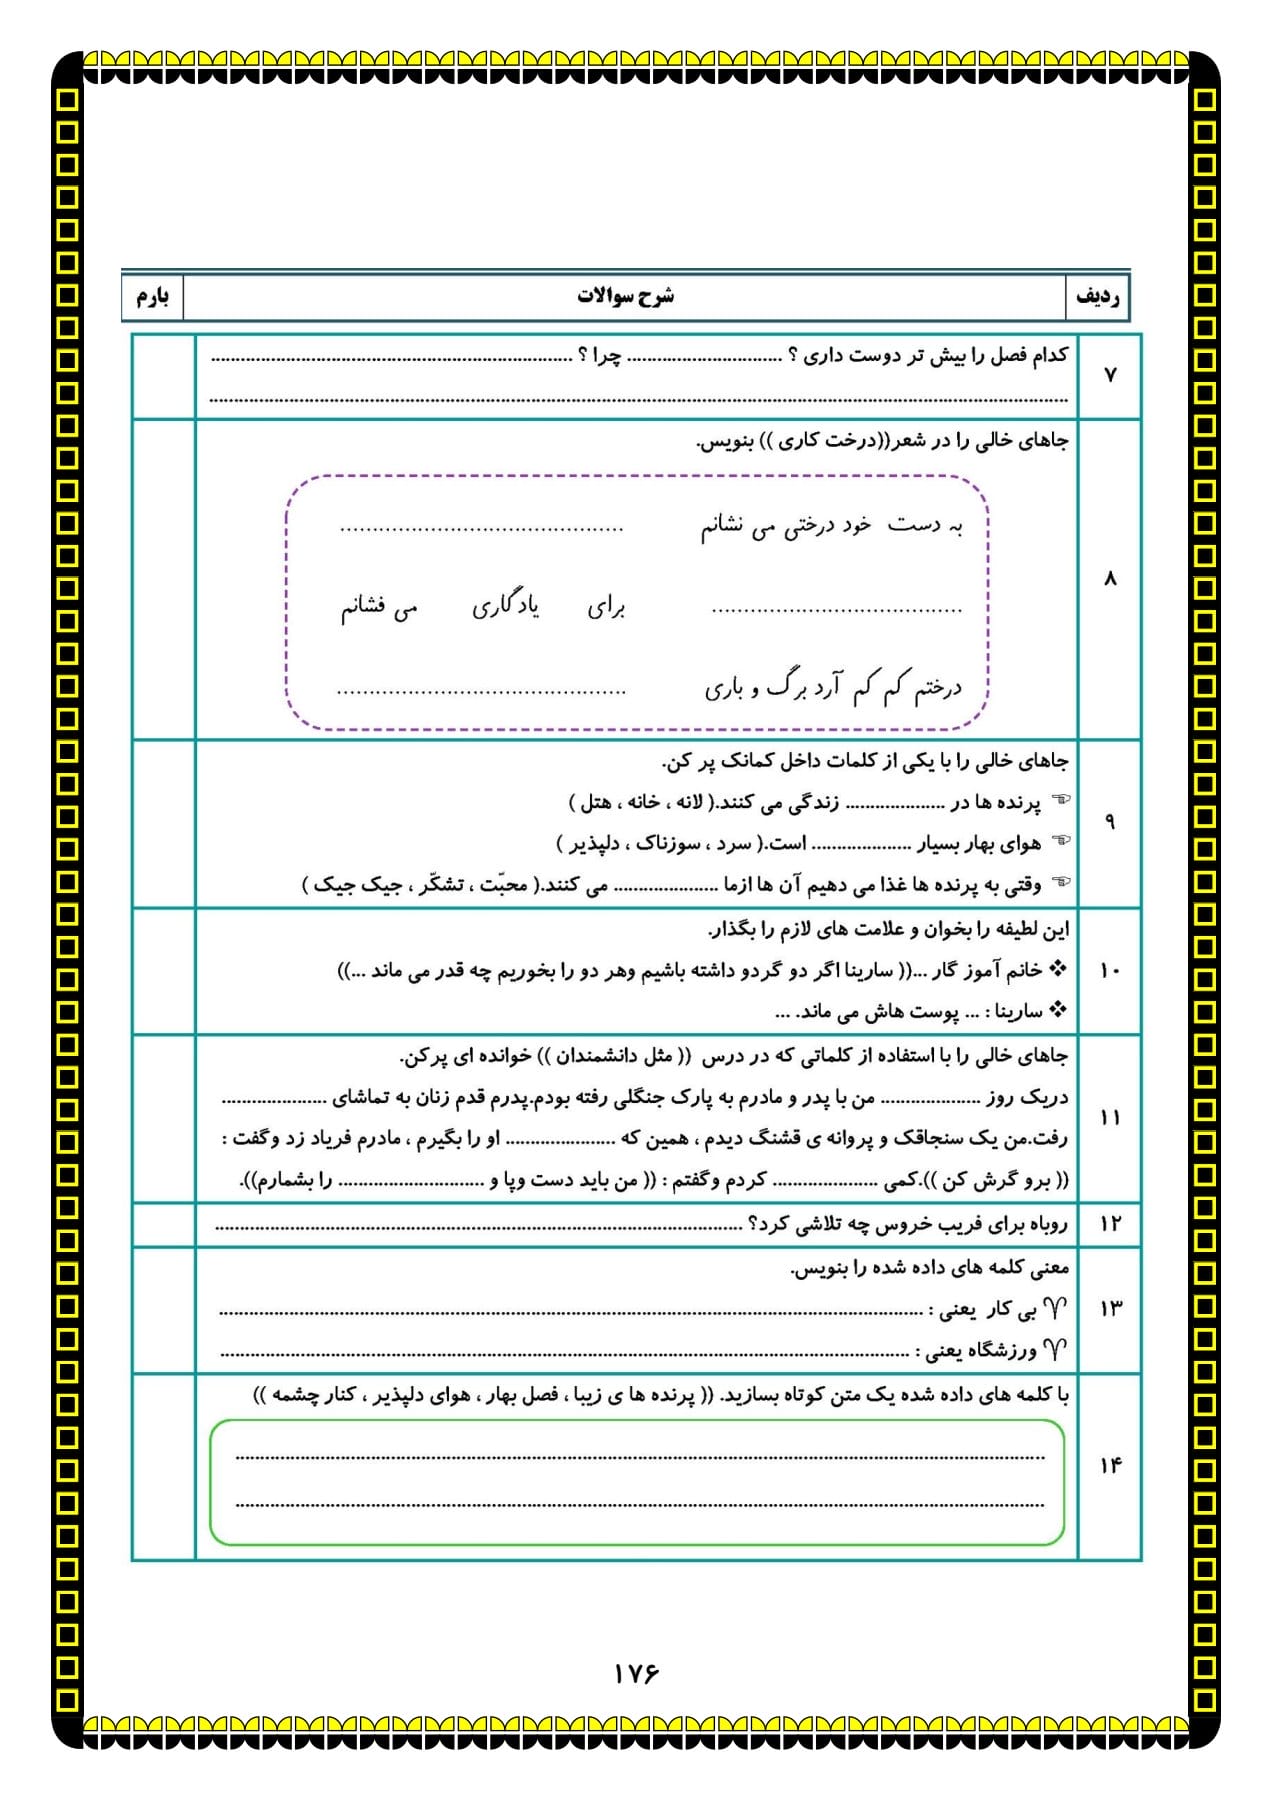 ردیف شرح سوالات بارم
۷ کدام فصل را بیش تر دوست داری ؟ ............................... چرا ؟ ........................................................................
................................................................................
جاهای خالی را در شعر((درخت کاری )) بنویس.
به دست خود درختی می نشانم ............................................
۸
....................................... برای یادگاری می فشانم
درختم کم کم آرد برگ و باری .............................................
جاهای خالی را با یکی از کلمات داخل کمانک پر کن.
۹ ☜ پرنده ها در .................... زندگی می کنند.( لانه ، خانه ، هتل )
☜ هوای بهار بسیار .................... است.( سرد ، سوزناک ، دلپذیر )
☜ وقتی به پرنده ها غذا می دهیم آن ها ازما ..................... می کنند.( محبّت ، تشکّر ، جیک جیک )
این لطیفه را بخوان و علامت های لازم را بگذار.
۱۰ ❖ خانم آموز گار ...(( سارینا اگر دو گردو داشته باشیم وهر دو را بخوریم چه قدر می ماند ...))
❖ سارینا : ... پوست هاش می ماند. ...
جاهای خالی را با استفاده از کلماتی که در درس (( مثل دانشمندان )) خوانده ای پرکن.
۱۱ دریک روز .................... من با پدر و مادرم به پارک جنگلی رفته بودم.پدرم قدم زنان به تماشای .....................
رفت.من یک سنجاقک و پروانه ی قشنگ دیدم ، همین که ...................... او را بگیرم ، مادرم فریاد زد وگفت :
(( برو گرش کن )).کمی ..................... کردم وگفتم : (( من باید دست وپا و ............................. را بشمارم)).
۱۲ روباه برای فریب خروس چه تلاشی کرد؟ ................................................................................
معنی کلمه های داده شده را بنویس.
۱۳ ♈ بی کار یعنی : ................................................................................
♈ ورزشگاه یعنی : ................................................................................
با کلمه های داده شده یک متن کوتاه بسازید. (( پرنده ها ی زیبا ، فصل بهار ، هوای دلپذیر ، کنار چشمه ))
۱۴ ................................................................................
................................................................................
۱۷۶